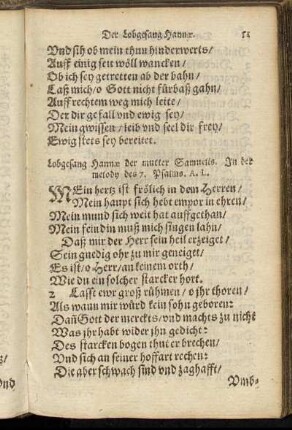 Der Lobgesang Hannæ. 51
Vnd sih ob mein thun hinderwerts/
Auff einig sen wöll wancken/
Ob ich sey getretten ab der bahn/
Laß mich/o Gott nicht fürbaß gahn/
Auff rechtem weg mich leite/
Der dir gefall vnd ewig sey/
Mein gwissen/leib vnd seel dir frey/
Ewig stets sey bereitet.
Lobgesang Hannæ der mutter Samuelis. In der
melody des 7. Psalms. A. L.
MEin hertz ist frölich in dem Herren/
Mein haupt sich hebt empor in ehren/
Mein mund sich weit hat auffgethan/
Mein feind in muß mich singen lahn/
Daß mir der Herr sein heil erzeiget/
Sein gnedig ohr zu mir geneiget/
Es ist/o Herr/an keinem orth/
Wie du ein solcher starcker hort.
2 Lasst ewr groß rühmen/o jhr thoren/
Als wann mir würd kein sohn geboren:
Daß Gott der merckts/vnd machts zu nicht
Was jhr habt wider jhn gedicht:
Des starcken bogen thut er brechen/
Vnd sich an seiner hoffart rechen:
Die aber schwach sind vnd zaghafft/
Vmb-